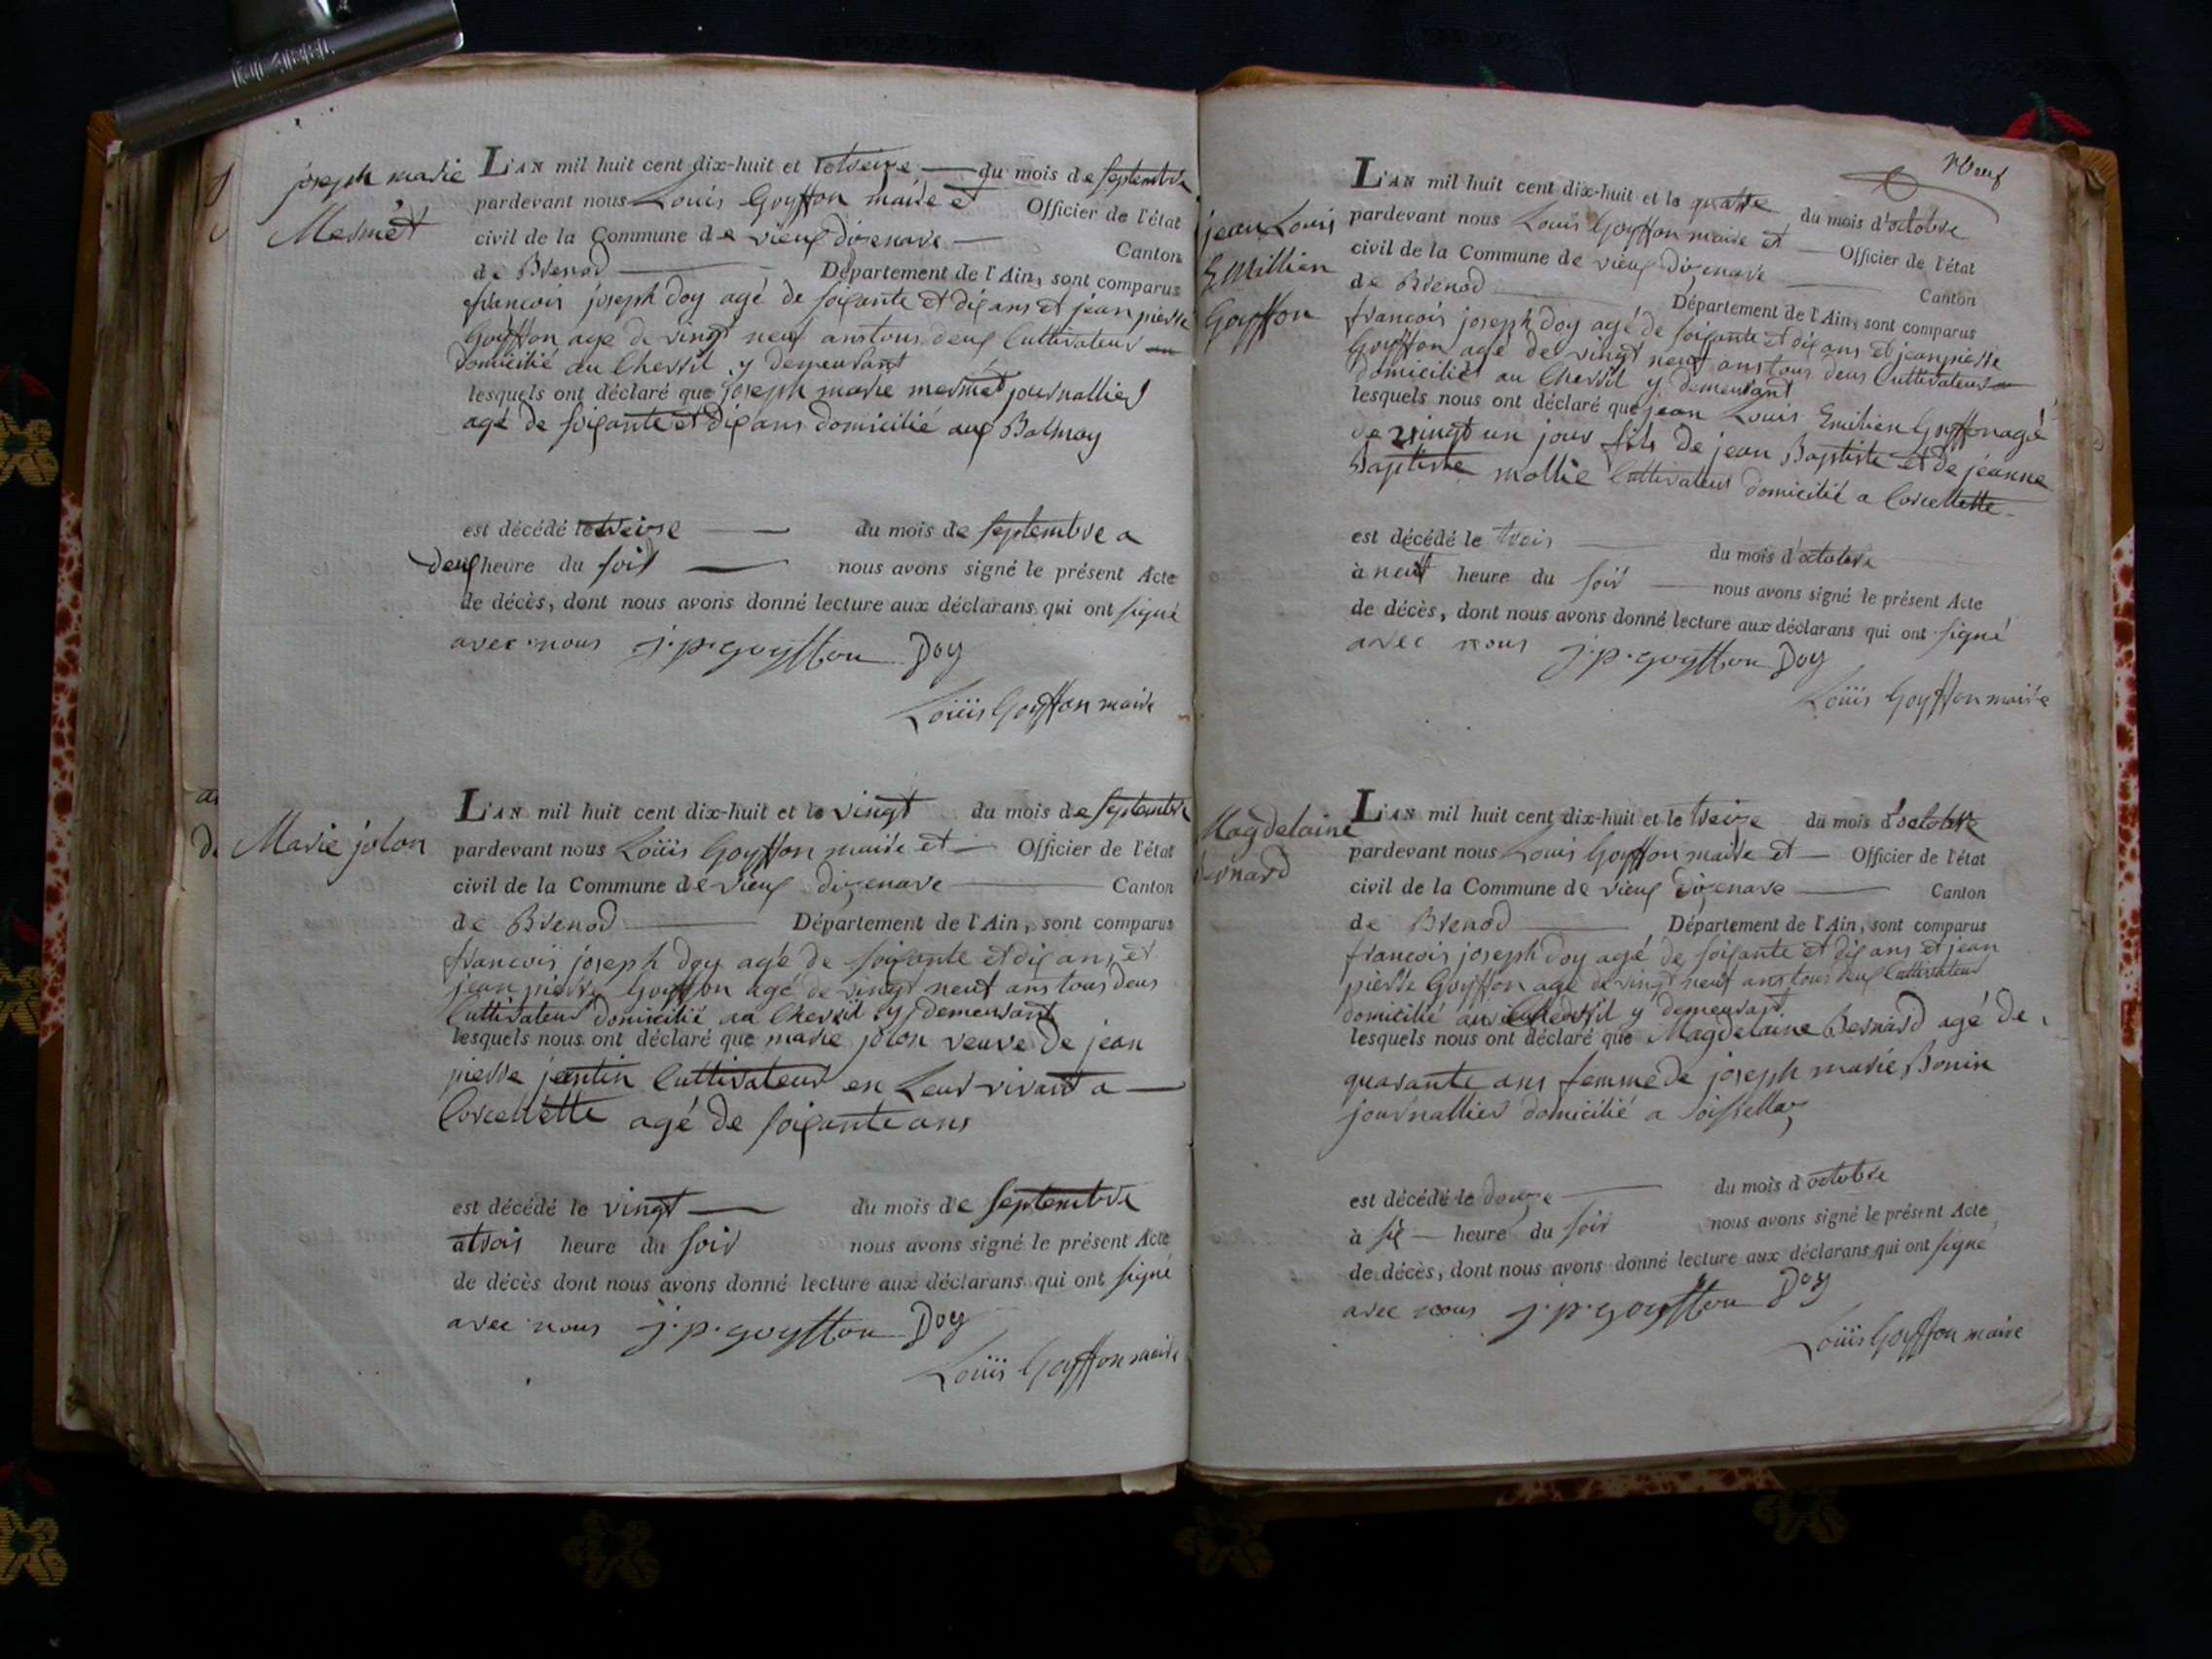 joseph marie
Mermet
L'AN mil huit cent dix-huit et le treize du mois de septembre
pardevant nous Louis Goyffon maire et Officier de l'état
civil de la Commune de vieux dizenave Canton
de Brenod Département de l'Ain, sont comparus
francois joseph Doy agé de soixante et dix ans et jean pierre
Goyffon agé de vingt neuf ans tous deux Cultivateur
domicilié au Chevril y demeurant
lesquels ont déclaré que joseph marie mermet journallier
agé de soixante et dix ans domicilié aux Balmay
est décédé le treize du mois de septembre a
deux heure du soir nous avons signé le présent Acte
de décès, dont nous avons donné lecture aux déclarans qui ont signé
avec nous j.p. goyffon Doy
Loüis Goyffon maire
Marie jolon
L'AN mil huit cent dix-huit et le vingt du mois de septembre
pardevant nous Loüis Goyffon maire et Officier de l'état
civil de la Commune de vieux dizenave Canton
de Brenod Département de l'Ain, sont comparus
francois joseph doy agé de soixante et dix ans et
jean pierre Goyffon agé de vingt neuf ans tous deux
Cultivateur domicilié au Chevril y demeurant
lesquels nous ont déclaré que marie jolon veuve de jean
pierre jantin Cultivateur en Leur vivant a
Corcelette agé de soixante ans
est décédé le vingt du mois de septembre
a trois heure du soir nous avons signé le présent Acte
de décès dont nous avons donné lecture aux déclarans qui ont signé
avec nous j.p. goyffon Doy
Loüis Goyffon maire
neuf
jean Louis
Emillien
Goyffon
L'AN mil huit cent dix-huit et le quatre du mois d'octobre
pardevant nous Louis Goyffon maire et Officier de l'état
civil de la Commune de vieux dizenave Canton
de Brenod Département de l'Ain, sont comparus
francois joseph doy agé de soixante et dix ans et jean pierre
Goyffon agé de vingt neuf ans tous deux Cultivateur
domiciliés au Chevril y demeurant
lesquels nous ont déclaré que jean Louis Emilien Goyffon agé
de vingt un jour fils de jean Baptiste et de jeanne
Baptiste mollie Cultivateur domicilié a Corcelette
est décédé le trois du mois d'octobre
à neuf heure du soir nous avons signé le présent Acte
de décès, dont nous avons donné lecture aux déclarans qui ont signé
avec nous j.p. goyffon Doy
Loüis Goyffon maire
Magdelaine
Bernard
L'AN mil huit cent dix-huit et le treize du mois d'octobre
pardevant nous Louis Goyffon maire et Officier de l'état
civil de la Commune de vieux dizenave Canton
de Brenod Département de l'Ain, sont comparus
francois joseph doy agé de soixante et dix ans et jean
pierre Goyffon agé de vingt neuf ans tous deux Cultivateur
domicilié au Chevril y demeurant
lesquels nous ont déclaré que Magdelaine Bernard agé de
quarante ans femme de joseph marie Bonin
journallier domicilié a
est décédé le douze du mois d'octobre
à six heure du soir nous avons signé le présent Acte
de décès, dont nous avons donné lecture aux déclarans qui ont signé
avec nous j.p. goyffon Doy
Loüis Goyffon maire